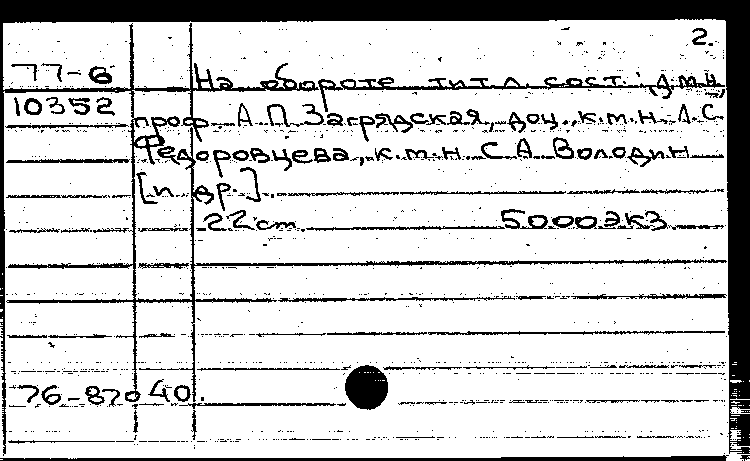 2.
77-6 На обороте тит. л. сост.: д.м.н.,
10352 проф. А.П. Загрядская, доц., к.м.н. Л.С.
Федоровцева, к.м.н. С.А. Володин
[и др.].
22 cm 5000 экз.
76-87040.